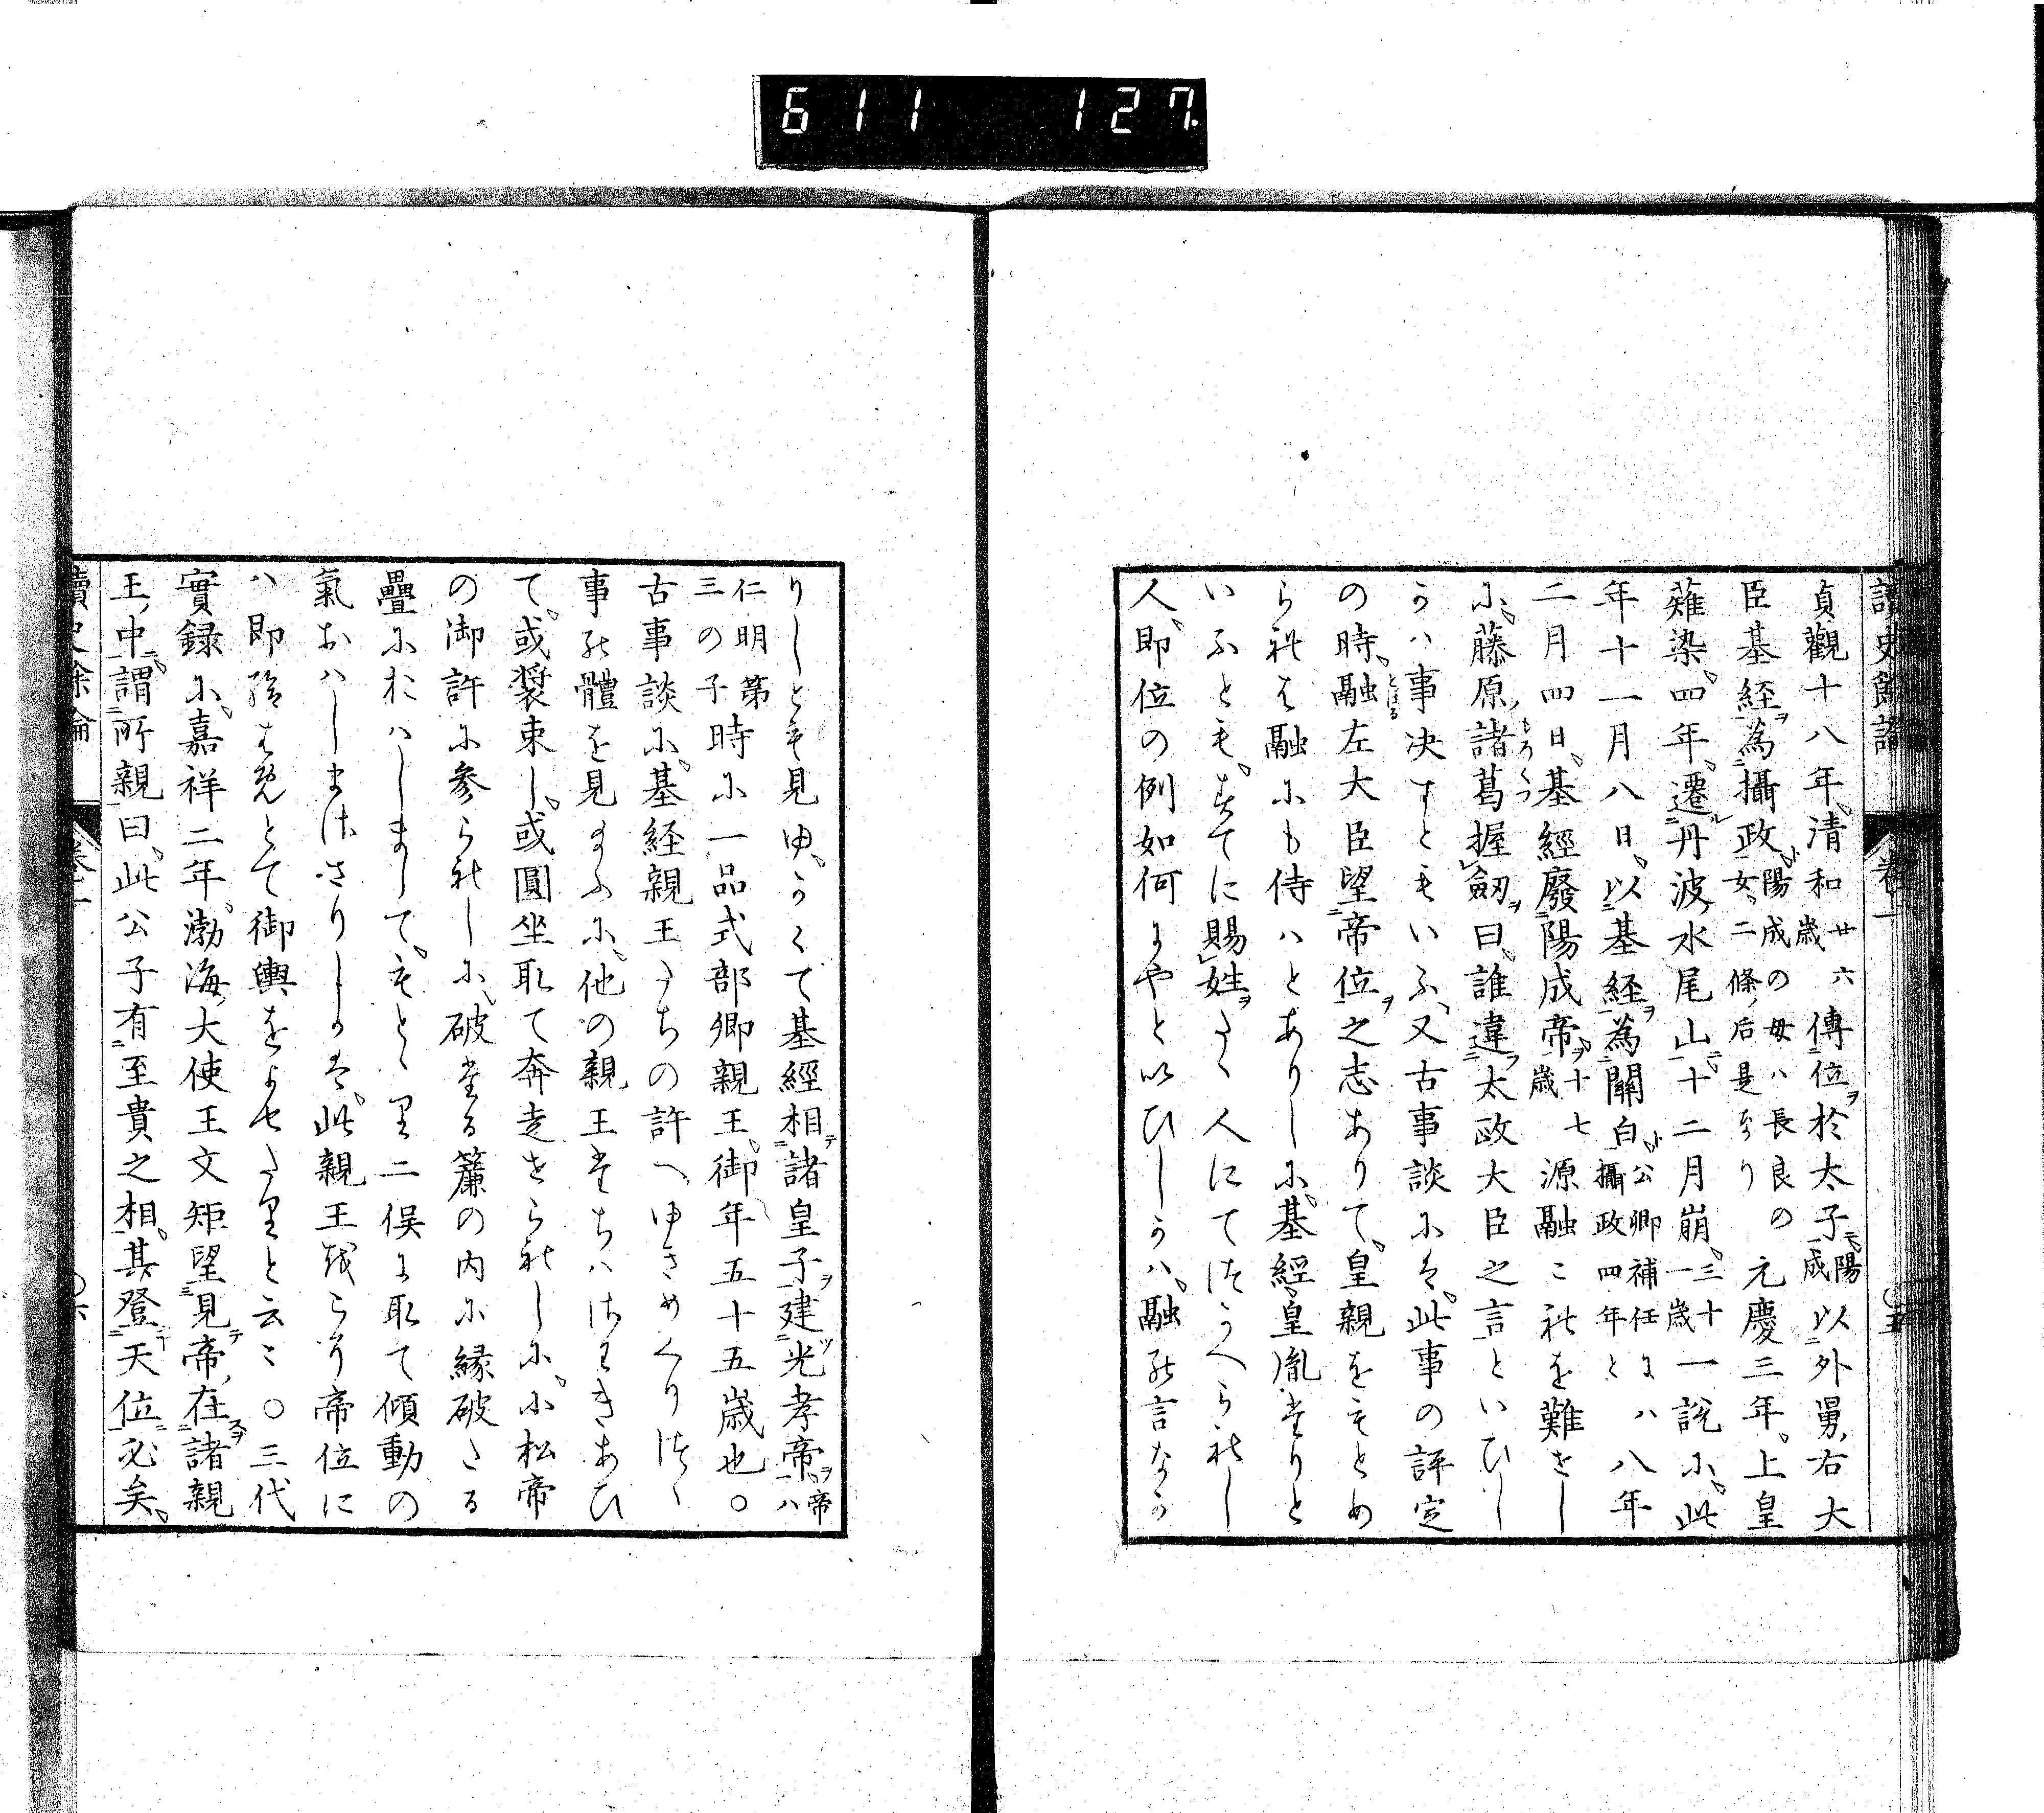 611 127.
讀史餘論 卷一
貞觀十八年、清和廿六歳傳位於太子陽成以外舅右大
臣基経爲攝政、陽成の母ハ長良の女、二條后是なり 元慶三年。上皇
薙染。四年。遷丹波水尾山十二月崩。三十一歳一説ニ、此
年十一月八日、以基経爲關白、公卿補任にハ八年攝政四年と 八年
二月四日、基經廢陽成帝、十七歳 源融これを難せし
に、藤原諸葛握劔曰、誰違太政大臣之言といひし
かハ事决すともいふ、又古事談には、此事の評定
の時、融左大臣望帝位之志ありて、皇親をもとめ
られは融にも侍ハとありしに、基經、皇胤たりと
いふとも、すてに賜姓たゝ人にてつかへられし
人、即位の例如何にやと いひしかハ、融の言なか
りしとも見ゆ、かくて基經相諸皇子建光孝帝、帝ハ
仁明第三の子 時に一品式部卿親王、御年五十五歳也。〇
古事談に、基経親王たちの許へ、ゆきめくりつゝ
事の體を見るに、他の親王たちハさわきあひ
て、或裝束し、或圓坐取て奔走せられしに、小松帝
の御許に参られしに、破たる簾の内に縁破たる
疊におハしまして、もとゝり二俣に取て傾動の
氣おハしまさゝりしかは、此親王我らか帝位に
ハ即給はんとて御輿をよせたりと云こ 〇三代
實録に、嘉祥二年、渤海大使王文矩望見帝在諸親
王中、謂所親曰、此公子有至貴之相、其登天位必矣、
讀史餘論 卷一 〇六